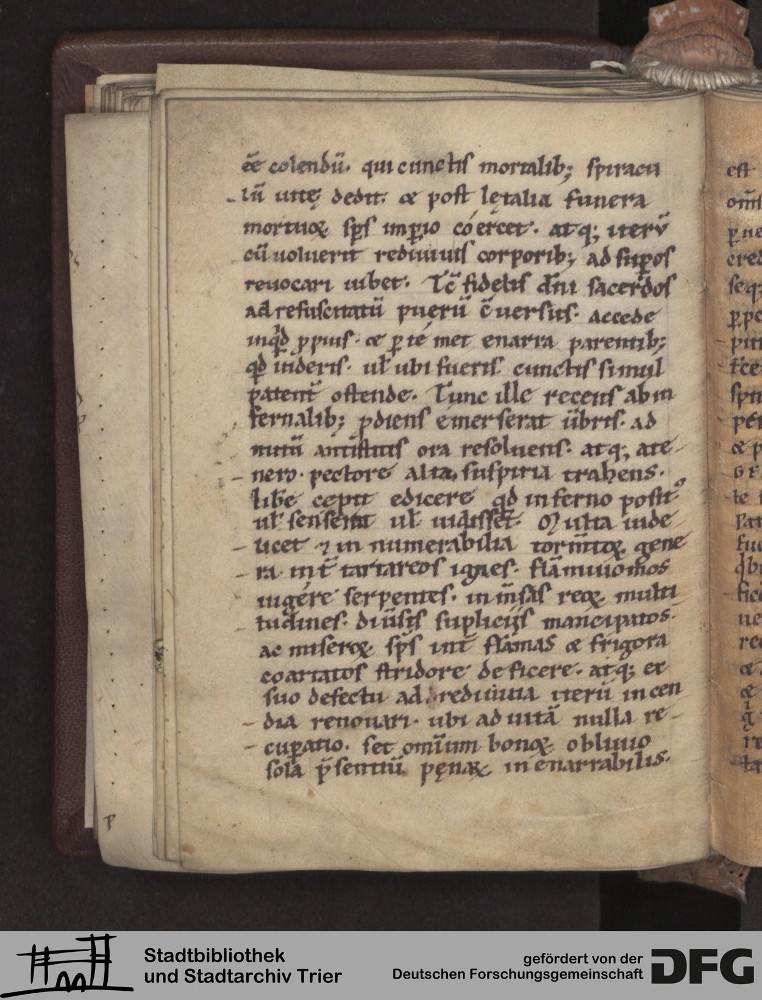 eē colendū. qui cunctis mortalib; spiracu
lū uitę dedit. & post lętalia funera
mortuoꝝ sp̄s imꝑio cóercet. atq; iterū
cū uoluerit rediuiuis corporib; ad suꝑos
reuocari iubet. Tc̄ fidelis dn̄i sacerdos
ad resuscitatū puerū c̄uersus. accede
inqd̄ ꝓpius. & ꝑ te met enarra parentib;
qd̄ uideris. ul̄ ubi fueris cunctis simul
patent̄ ostende. Tunc ille recens ab in
fernalib; ꝓdiens emerserat ūbris. ad
nutū antistitis ora resoluens. atq; ate
nero pectore alta suspiria trahens.
lib̄e cepit edicere qd̄ in ferno posit᷒
ul̄ senserit ul̄ uidisset. Multa uide
licet ⁊ in numerabilia torm̄toꝝ gene
ra. int̄ tartareos ignes. flāmiuomos
uigere serpentes. in m̄sas reoꝝ multi
tudines. diūsis supliciis mancipatos.
ac miseroꝝ sp̄s int̄ flāmas & frigora
coartatos stridore deficere. atq; ex
suo defectu ad rediuiua iterū incen
dia renouari. ubi ad uitā nulla re
cuꝑatio. set omium bonoꝝ obliuio
sola p̄sentiū pęnaꝝ in enarrabilis.
est
Stadtbibliothek
und Stadtarchiv Trier
gefördert von der
Deutschen Forschungsgemeinschaft
DFG